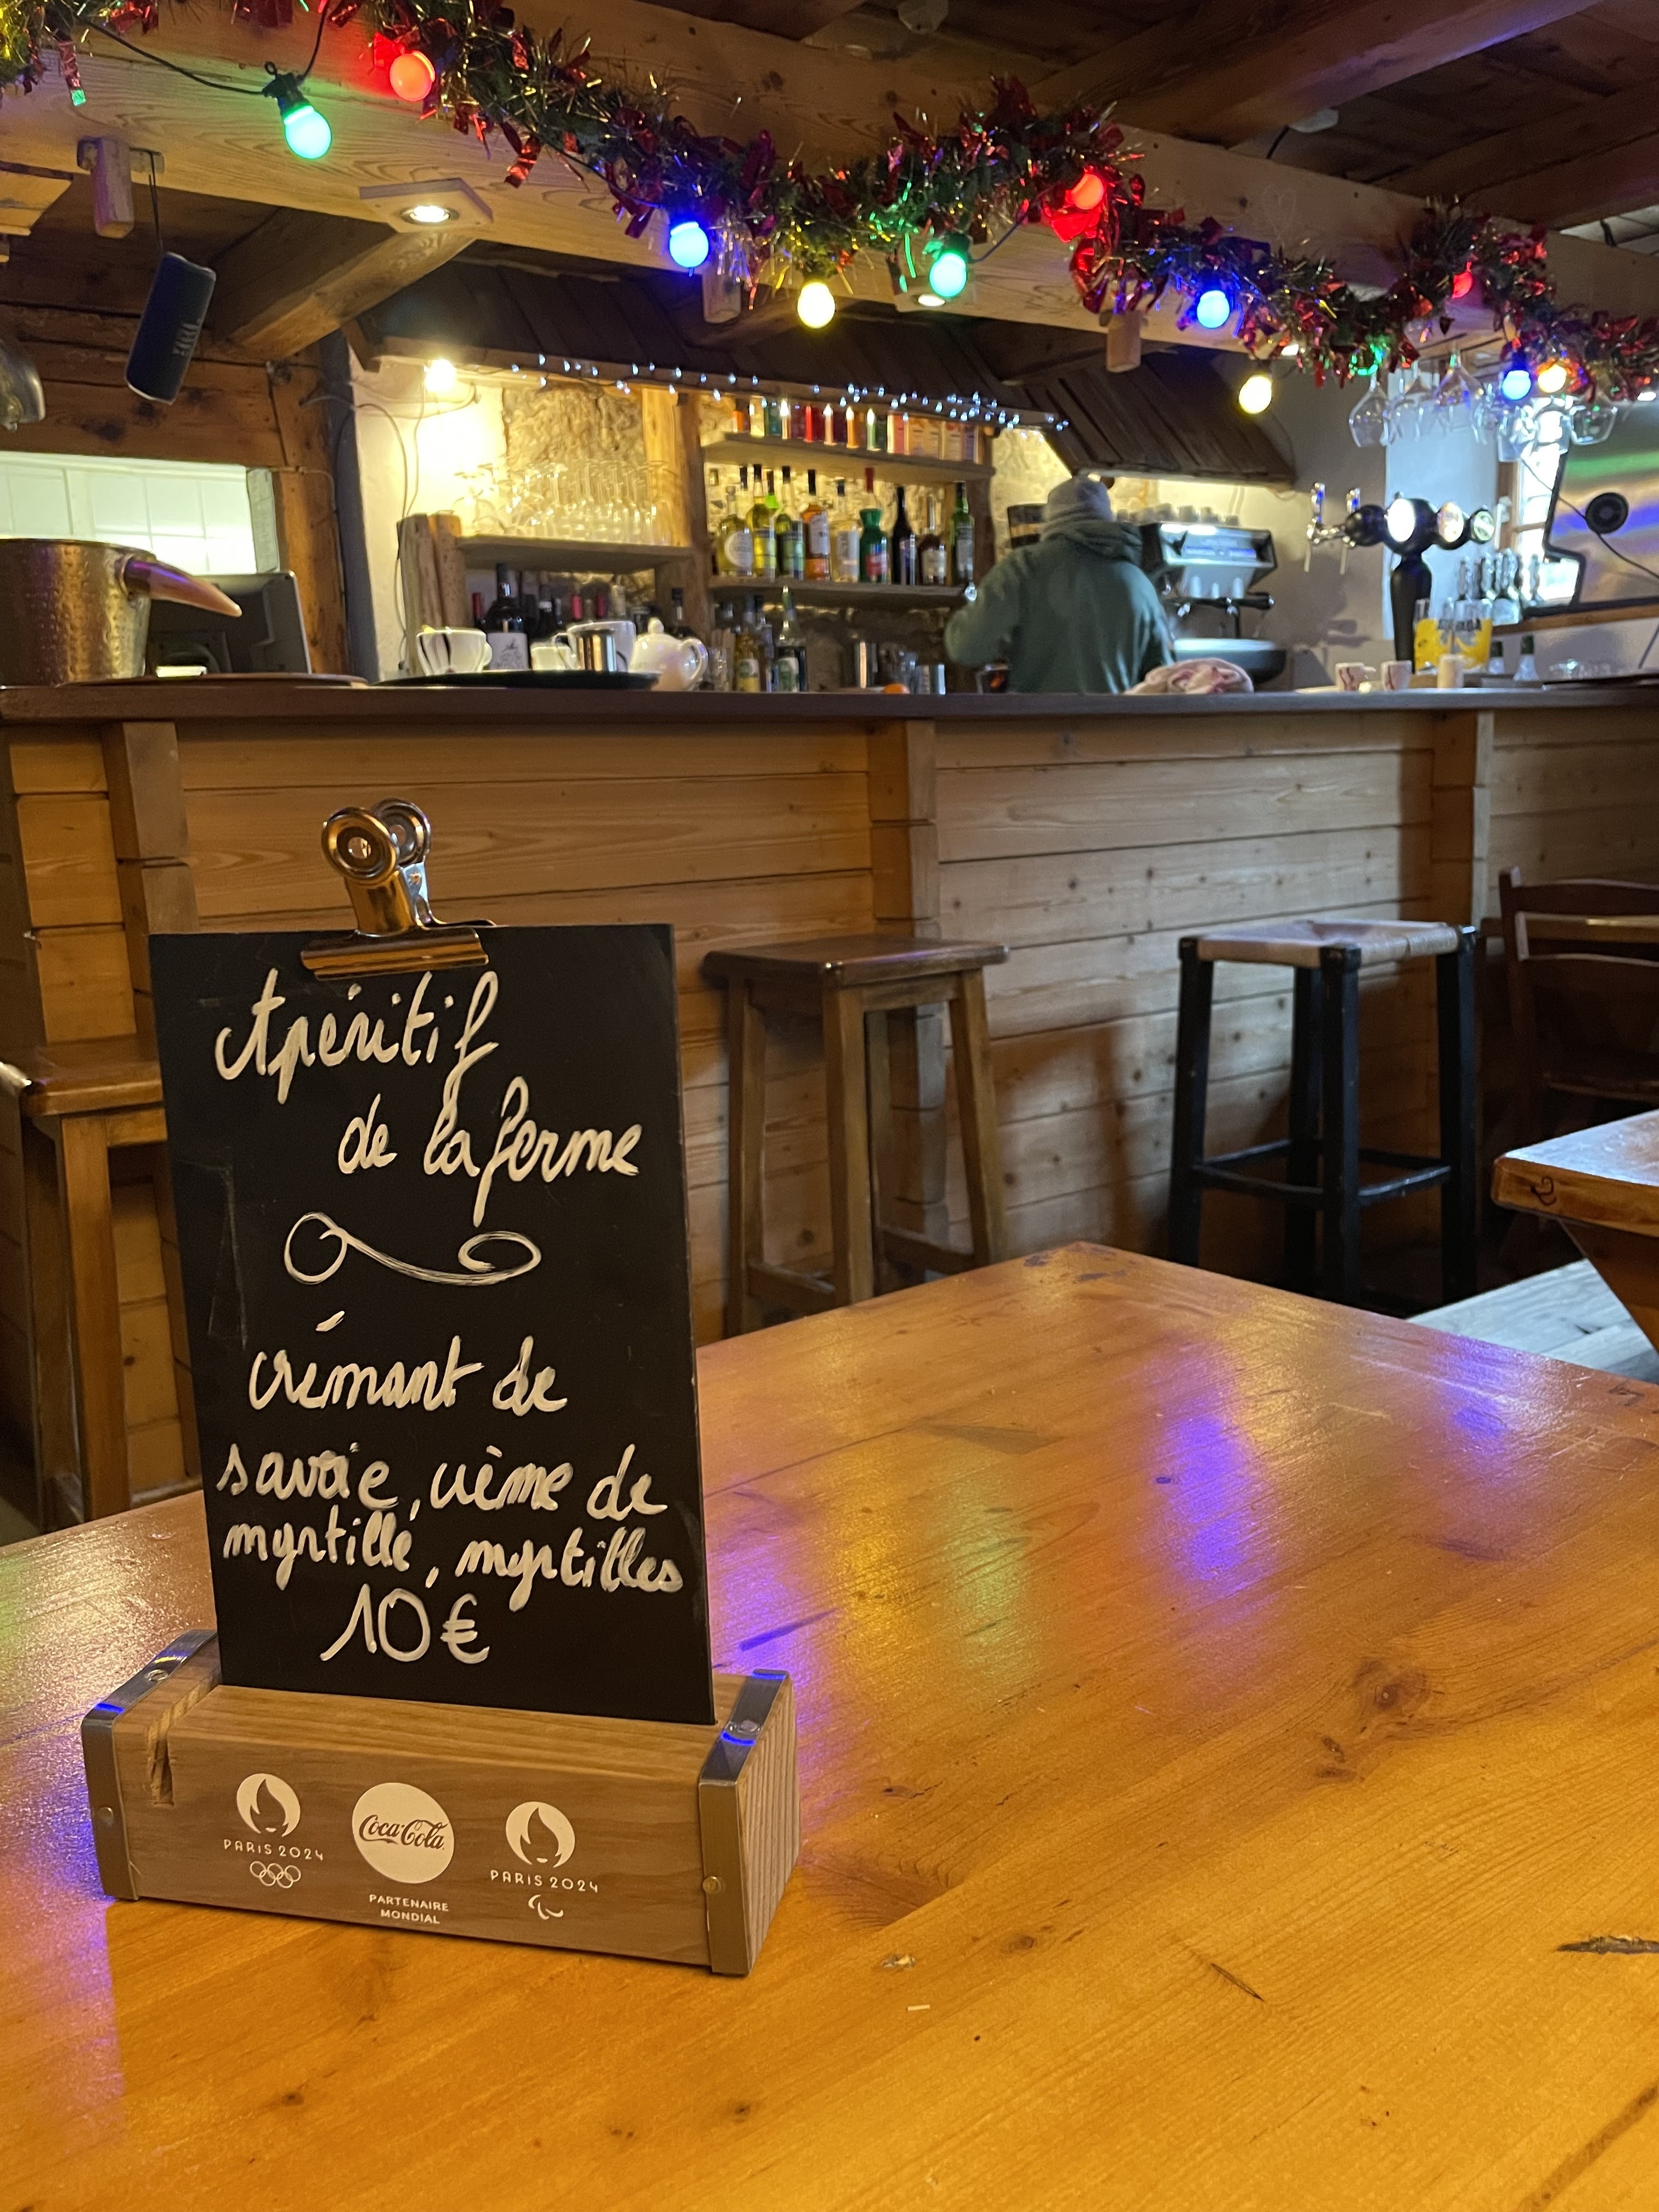 Apéritif
de la ferme
crémant de
savoie, crème de
myrtille, myrtilles
10€
PARIS 2024
Coca-Cola
PARTENAIRE
MONDIAL
PARIS 2024